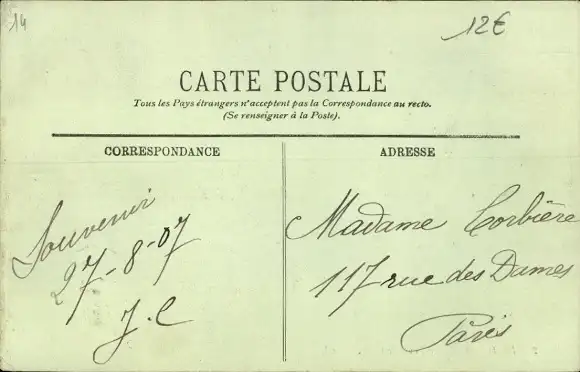 14
12€
CARTE POSTALE
Tous les Pays étrangers n'acceptent pas la Correspondance au recto.
(Se renseigner à la Poste).
CORRESPONDANCE
Souvenir
27-8-07
J.C
ADRESSE
Madame Corbière
117 rue des Dames
Paris